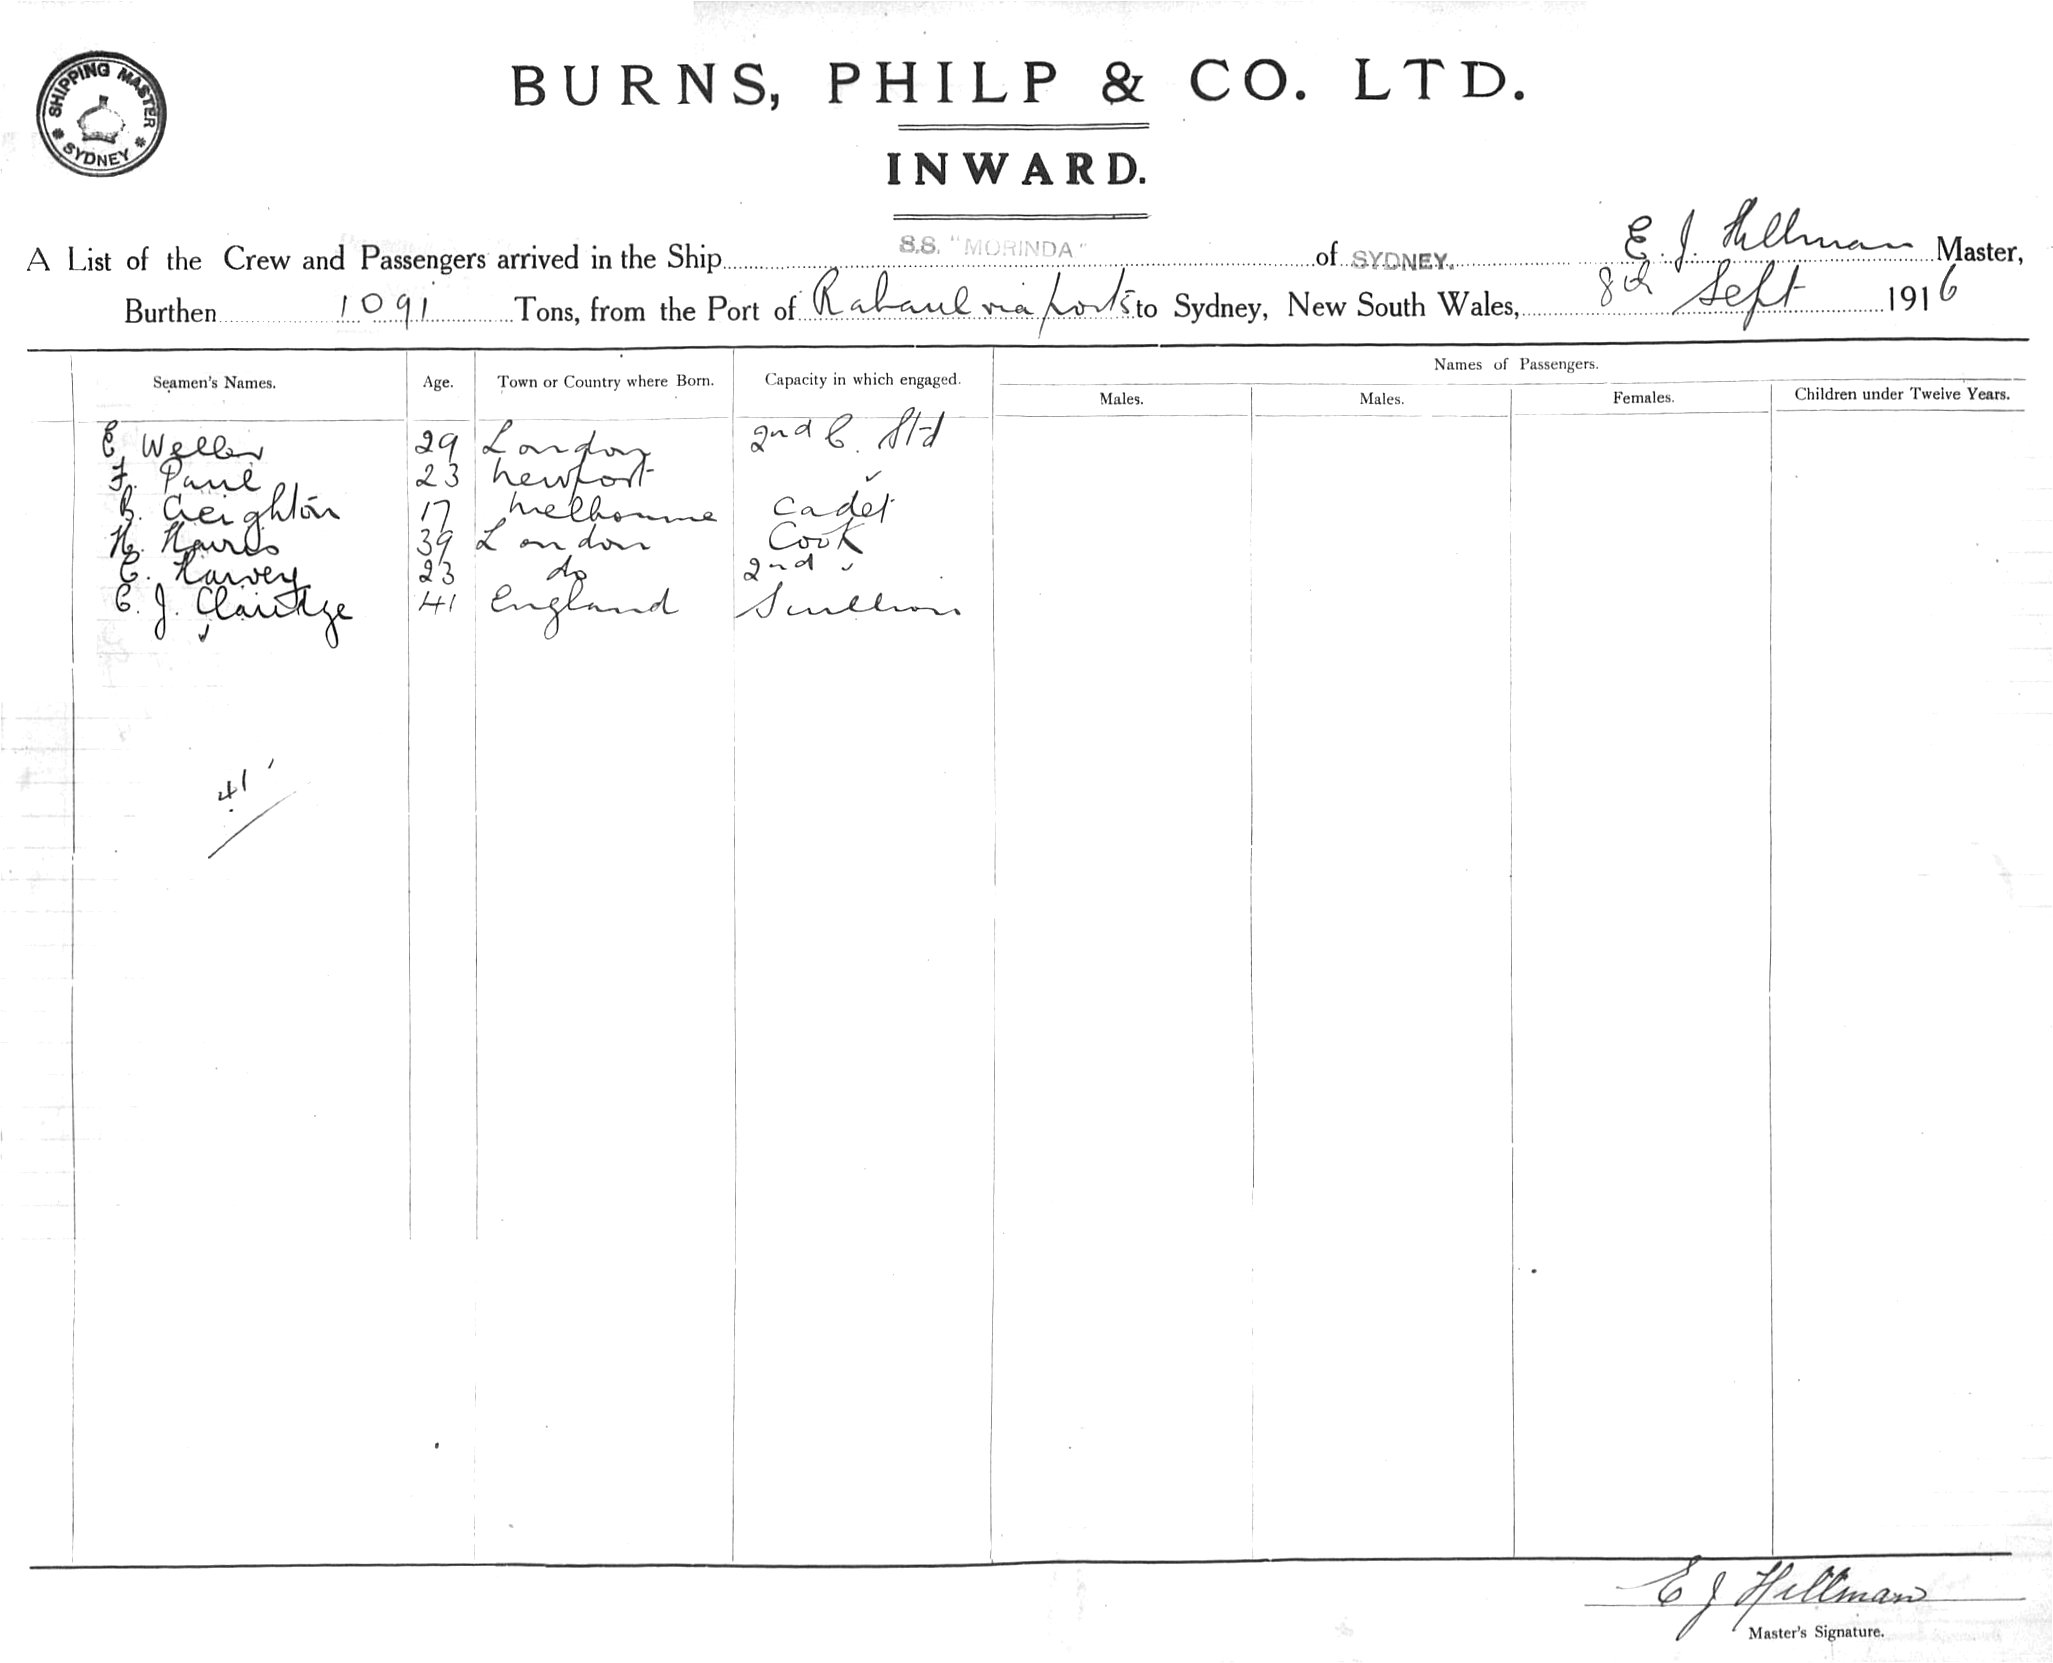 SHIPPING MASTER
SYDNEY
BURNS, PHILP & CO. LTD.
INWARD.
A List of the Crew and Passengers arrived in the Ship S.S. "MORINDA" of SYDNEY. E. J. Hillman Master,
Burthen 1091 Tons, from the Port of Rabaul via ports to Sydney, New South Wales, 8th Sept 1916
Names of Passengers.
Seamen's Names. Age. Town or Country where Born. Capacity in which engaged. Males. Males. Females. Children under Twelve Years.
E. Weller 29 London 2nd C. Std
F. Paul 23 Newport
B. Creighton 17 Melbourne Cadet
H. Harris 39 London Cook
C. Harvey 23 do 2nd "
C. J. Claridge 41 England Scullion
41
E J Hillman
Master's Signature.